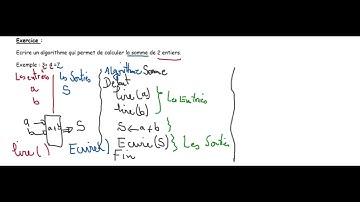 Exercice :
Ecrire un algorithme qui permet de calculer la somme de 2 entiers.
Les entrées
Les Sorties
a
S
b
a
b
a+b
S
lire( )
Ecrire( )
Algorithme Somme
Début
lire(a)
lire(b)
Les Entrées
S ← a+b
Ecrire(S)
Les Sorties
Fin